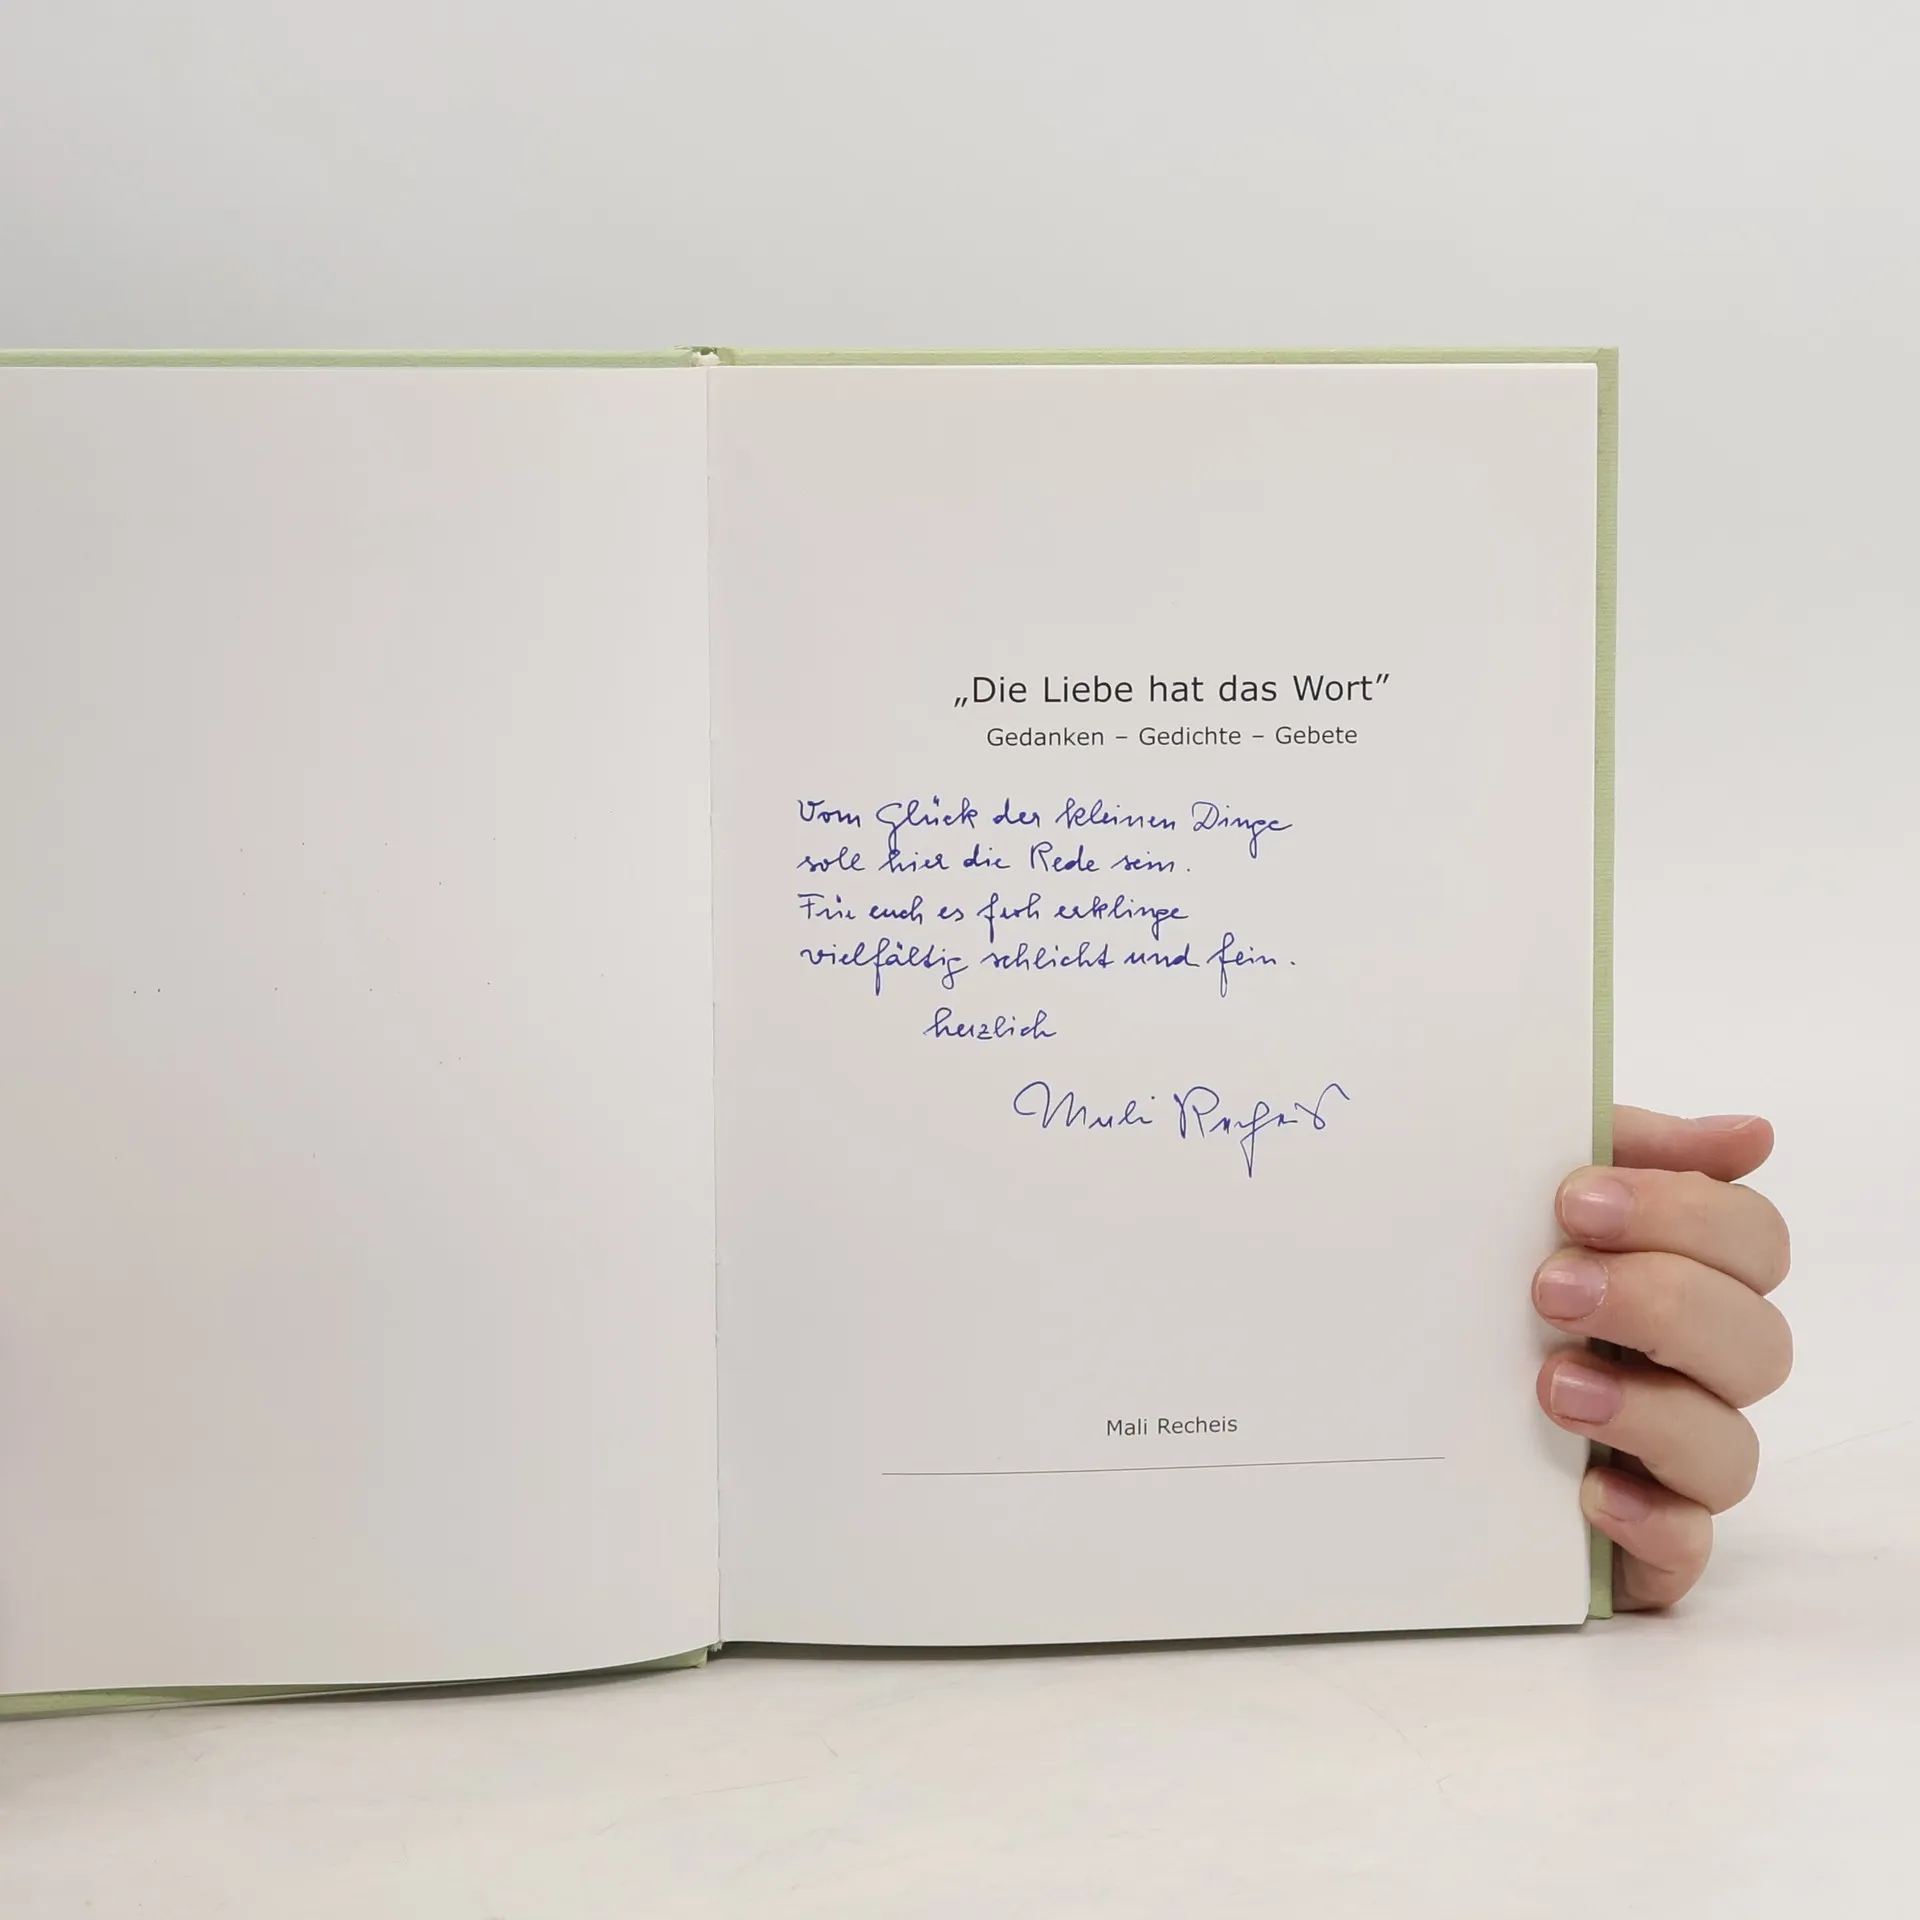 „Die Liebe hat das Wort”
Gedanken – Gedichte – Gebete
Vom Glück der kleinen Dinge
soll hier die Rede sein.
Für euch es froh erklinge
vielfältig schlicht und fein.
herzlich
Mali Recheis
Mali Recheis